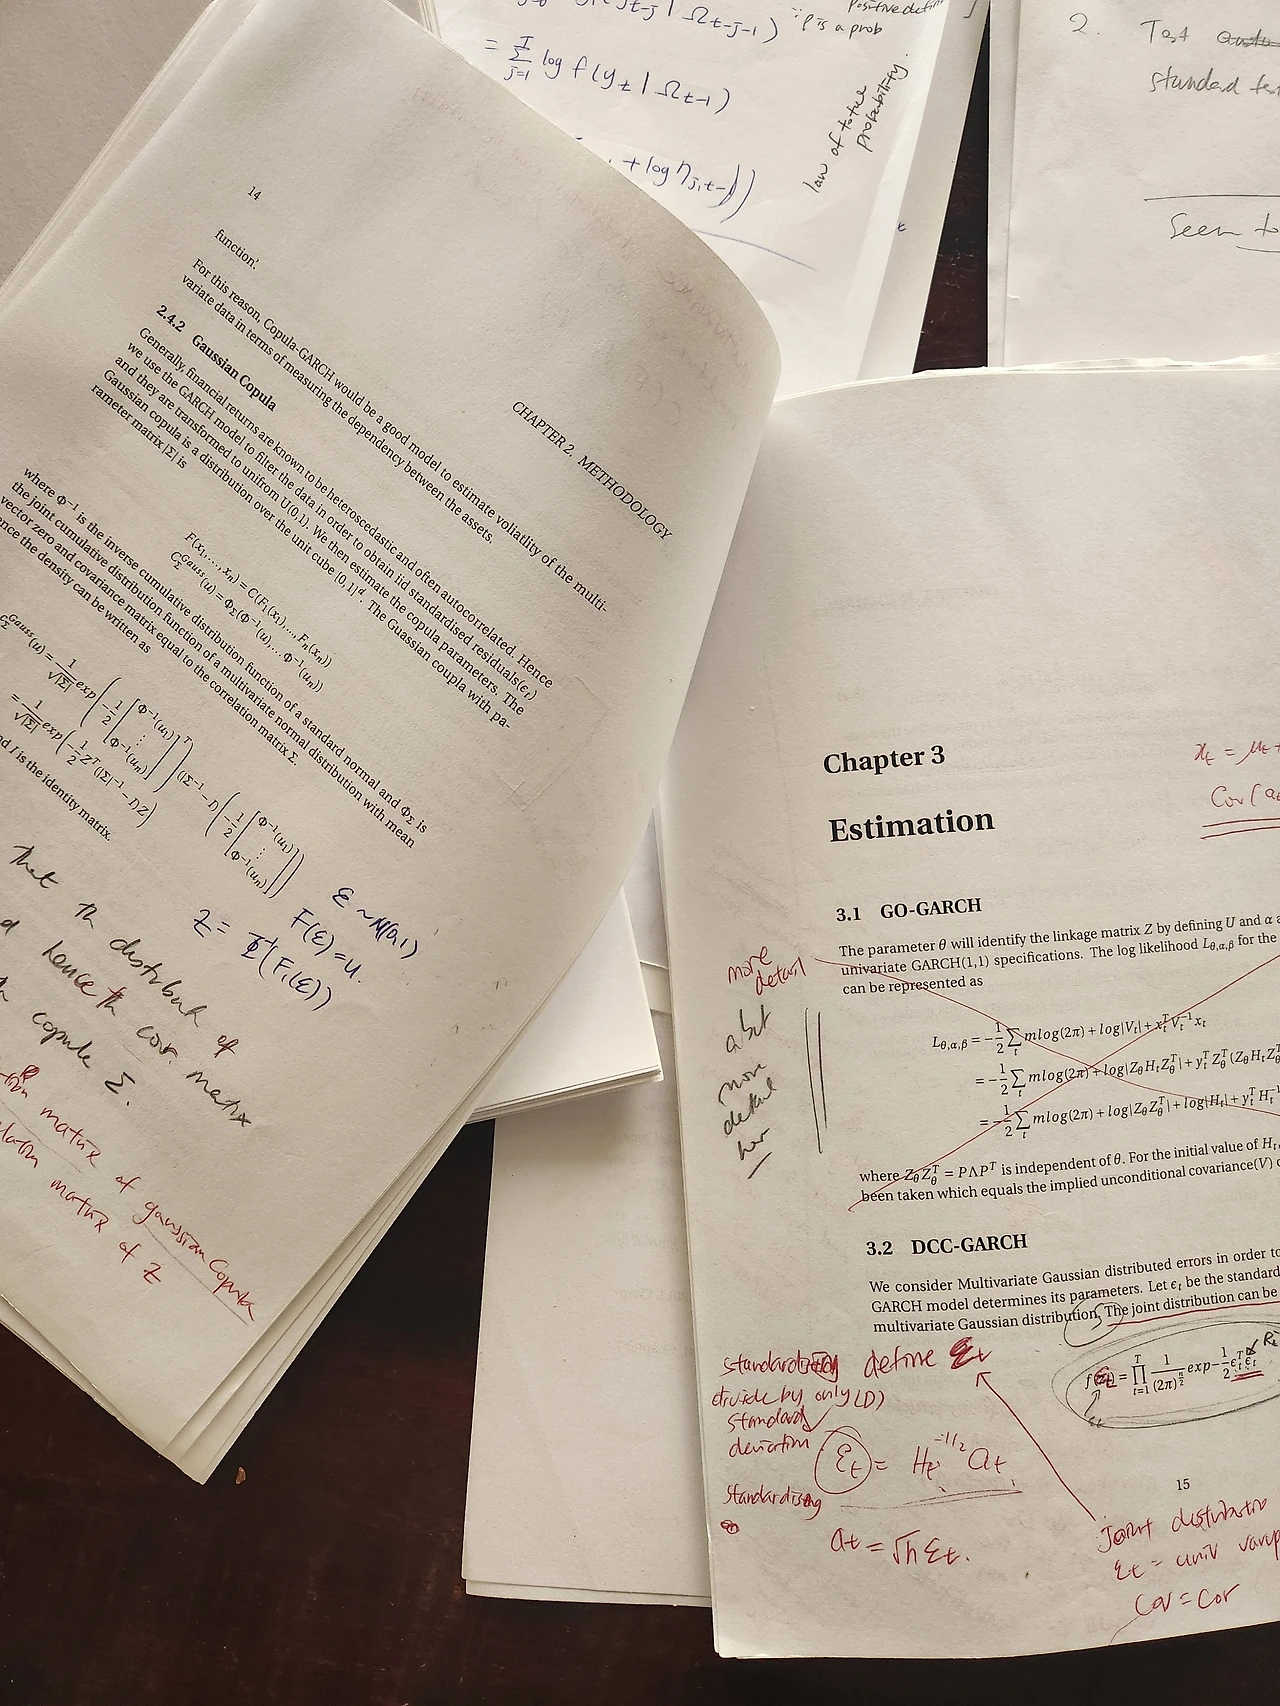 14
CHAPTER 2. METHODOLOGY
function'.
For this reason, Copula-GARCH would be a good model to estimate voliatlity of the multi-
variate data in terms of measuring the dependency between the assets.
2.4.2 Gaussian Copula
Generally, financial returns are known to be heteroscedastic and often autocorrelated. Hence
we use the GARCH model to filter the data in order to obtain iid standardised residuals(ϵt)
and they are transformed to unifrom U(0,1). We then estimate the copula parameters. The
Gaussian copula is a distribution over the unit cube [0,1]^d. The Guassian coupla with pa-
rameter matrix |Σ| is
F(x1,...,xn) = C(F1(x1),...,Fn(xn))
C_Σ^Gauss(u) = Φ_Σ(Φ^-1(u),...Φ^-1(un))
where Φ^-1 is the inverse cumulative distribution function of a standard normal and Φ_Σ is
the joint cumulative distribution function of a multivariate normal distribution with mean
vector zero and covariance matrix equal to the correlation matrix Σ.
the density can be written as
c_Σ^Gauss(u) = 1/√|Σ| exp(-1/2 [Φ^-1(u1) ⋮ Φ^-1(un)]^T (Σ^-1 - I) (-1/2 [Φ^-1(u1) ⋮ Φ^-1(un)]))
= 1/√|Σ| exp(-1/2 Z^T(|Σ|^-1 - I)Z)
I is the identity matrix.
ε ~ N(0,1)
F(ε) = u.
Z = Φ^-1(F(ε))
that th distributn of
hence th cov. matrix
copula Σ.
matrix of gaussian Copula
matrix of Z
Positive defin
∵ p is a prob
= Σ_{j=1}^T log f(yt | Ωt-1)
+ log ηj,t-1))
law of total
probability.
2. Test
standard tes
Seem to
Chapter 3
Estimation
xt = μt +
Cov(a
3.1 GO-GARCH
The parameter θ will identify the linkage matrix Z by defining U and α a
univariate GARCH(1,1) specifications. The log likelihood L_θ,α,β for the
can be represented as
L_θ,α,β = -1/2 Σ_t mlog(2π) + log|Vt| + xt^T Vt^-1 xt
= -1/2 Σ_t mlog(2π) + log|ZθHtZθ^T| + yt^T Zθ^T(ZθHtZθ^T
= -1/2 Σ_t mlog(2π) + log|ZθZθ^T| + log|Ht| + yt^T Ht^-1
where ZθZθ^T = PΛP^T is independent of θ. For the initial value of Ht,
been taken which equals the implied unconditional covariance(V)
more
detail
a bit
more
detail
her
3.2 DCC-GARCH
We consider Multivariate Gaussian distributed errors in order to
GARCH model determines its parameters. Let ϵt be the standard
multivariate Gaussian distribution, The joint distribution can be
f( ) = ∏_{t=1}^T 1/(2π)^{n/2} exp -1/2 ϵt^T ϵt
Rt
define εt
divide by only (D)
standard
deviation
εt = Ht^-1/2 at
standardising
at = √h εt.
15
Joint distribution
εt = univ
Cov = Cor